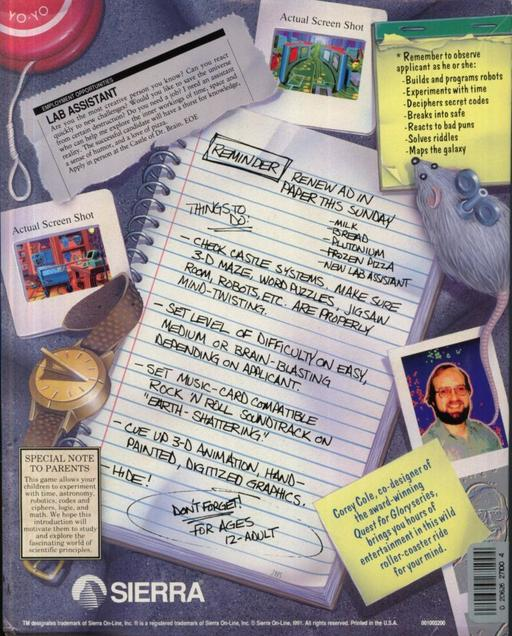 YO-YO
EMPLOYMENT OPPORTUNITIES
LAB ASSISTANT
Are you the most creative person you know? Can you react
quickly to new challenges? Would you like to save the universe
from certain destruction? Do you need a job? I need an assistant
who can help me explore the inner workings of time, space and
reality. The successful candidate will have a thirst for knowledge,
a sense of humor, and a love of pizza.
Apply in person at the Castle of Dr. Brain. EOE
Actual Screen Shot
* Remember to observe
applicant as he or she:
- Builds and programs robots
- Experiments with time
- Deciphers secret codes
- Breaks into safe
- Reacts to bad puns
- Solves riddles
- Maps the galaxy
REMINDER
RENEW AD IN
PAPER THIS SUNDAY
THINGS TO
DO:
- MILK
- BREAD
- PLUTONIUM
- FROZEN PIZZA
- NEW LAB ASSISTANT
- CHECK CASTLE SYSTEMS. MAKE SURE
3-D MAZE, WORD PUZZLES, JIGSAW
ROOM, ROBOTS, ETC. ARE PROPERLY
MIND-TWISTING.
- SET LEVEL OF DIFFICULTY ON EASY,
MEDIUM OR BRAIN-BLASTING
DEPENDING ON APPLICANT.
- SET MUSIC-CARD COMPATIBLE
ROCK 'N ROLL SOUNDTRACK ON
"EARTH-SHATTERING."
- CUE UP 3-D ANIMATION, HAND-
PAINTED, DIGITIZED GRAPHICS.
- HIDE!
DON'T FORGET!
FOR AGES
12-ADULT
Actual Screen Shot
SPECIAL NOTE
TO PARENTS
This game allows your
children to experiment
with time, astronomy,
robotics, codes and
ciphers, logic, and
math. We hope this
introduction will
motivate them to study
and explore the
fascinating world of
scientific principles.
Corey Cole, co-designer of
the award-winning
Quest for Glory series,
brings you hours of
entertainment in this wild
roller-coaster ride
for your mind.
SIERRA
TM designates trademark of Sierra On-Line, Inc. ® is a registered trademark of Sierra On-Line, Inc. © Sierra On-Line, 1991. All rights reserved. Printed in the U.S.A.
001000200